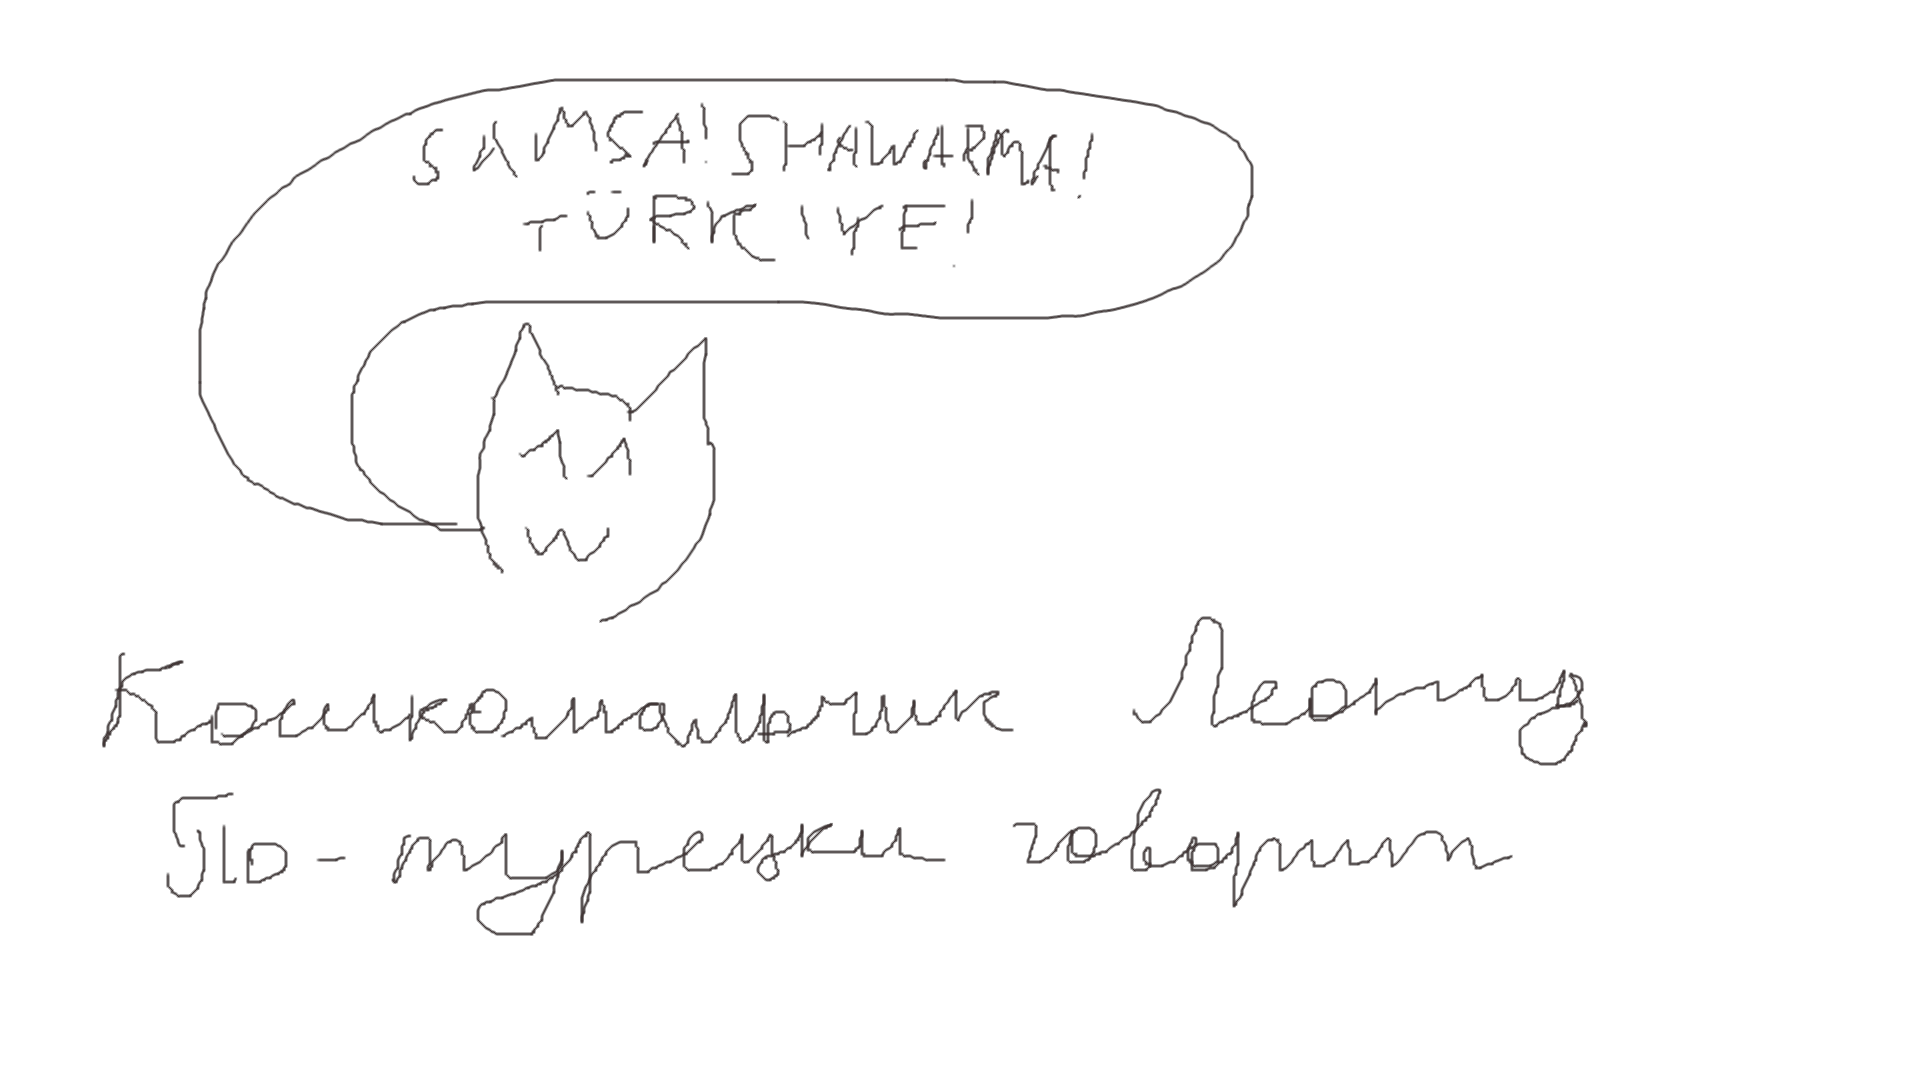 SAMSA! SHAWARMA!
TÜRKIYE!
Кошкомальчик Леонид
По-турецки говорит